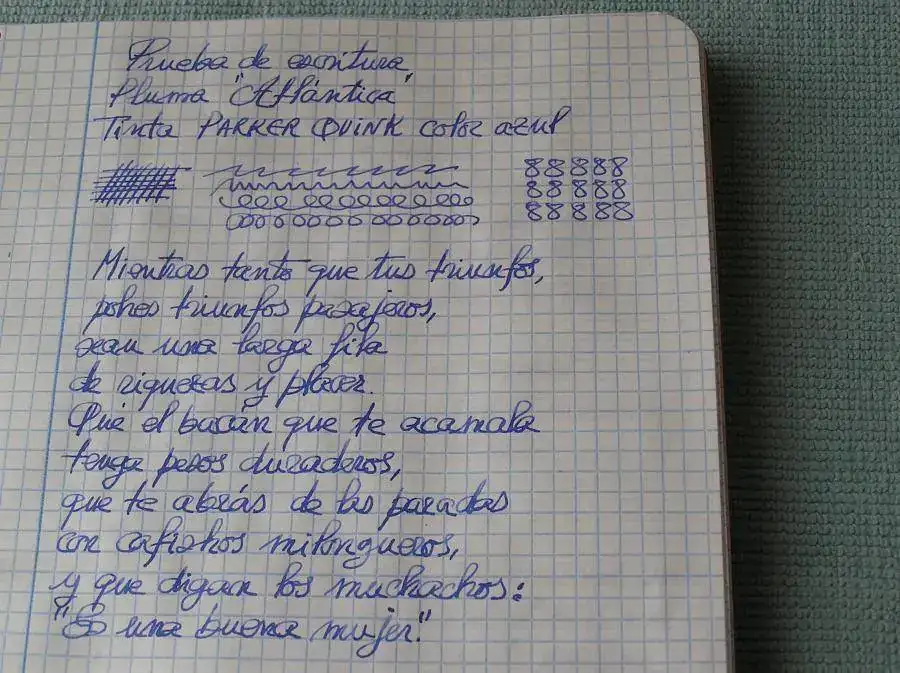 Prueba de escritura
Pluma "Atlántica"
Tinta PARKER QUINK color azul
8 8 8 8 8
8 8 8 8 8
8 8 8 8 8
Mientras tanto que tus triunfos,
pobres triunfos pasajeros,
sean una larga fila
de riquezas y placer.
Que el bacán que te acamala
tenga pesos duraderos,
que te abrás de las paradas
con cafishos milongueros,
y que digan los muchachos:
"Es una buena mujer".